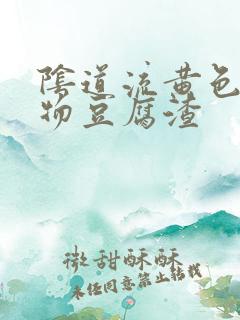 陰道流黄色
物豆腐渣
微甜酥酥
未任同意禁止转载